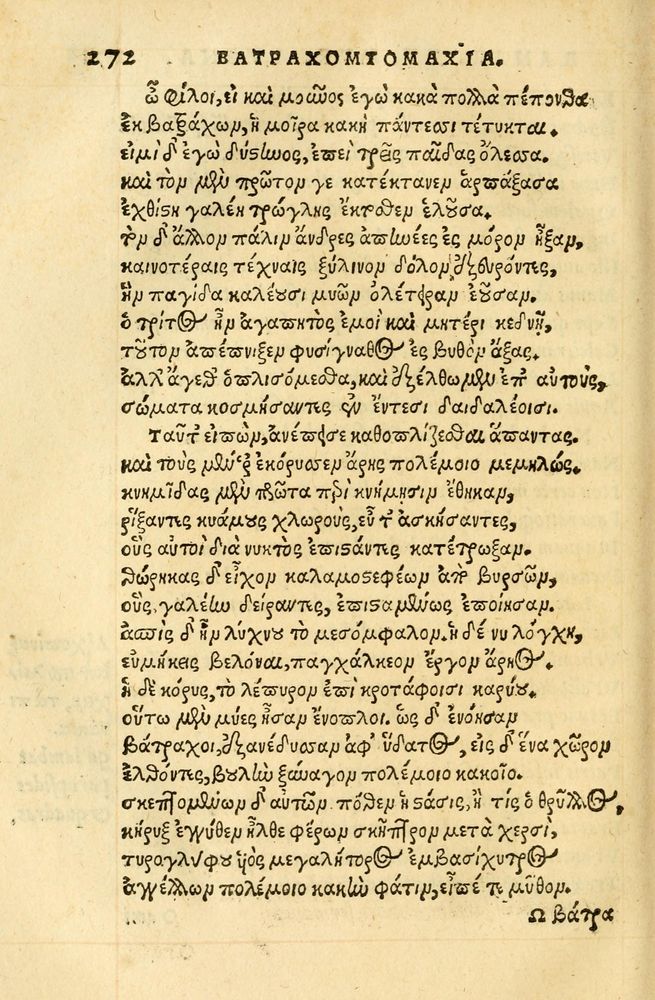 272 ΒΑΤΡΑΧΟΜΥΟΜΑΧΊΑ.
ὦ φίλοι, εἰ καὶ μοῦνος ἐγὼ κακὰ πολλὰ πέπονθα
ἐκ βατράχων, ἡ μοῖρα κακὴ πάντεσι τέτυκται.
εἰμὶ δ' ἐγὼ δύστηνος, ἐπεὶ τρεῖς παῖδας ὄλεσα.
καὶ τὸν μὲν πρῶτον γε κατέκτανεν ἁρπάξασα
ἐχθίστη γαλέη τρώγλης ἔκτοθεν ἑλοῦσα.
τὸν δ' ἄλλον πάλιν ἄνδρες ἀπηνέες ἐς μόρον ἦξαν,
καινοτέραις τέχναις ξύλινον δόλον ἐξευρόντες,
ἣν παγίδα καλέουσι μυῶν ὀλέτειραν ἐοῦσαν.
ὁ τρίτος ἦν ἀγαπητὸς ἐμοὶ καὶ μητέρι κεδνῇ,
τοῦτον ἀπέπνιξεν φυσίγναθος ἐς βυθὸν ἄξας.
ἀλλ' ἄγεθ' ὁπλισόμεσθα, καὶ ἐξέλθωμεν ἐπ' αὐτοὺς,
σώματα κοσμήσαντες ἐν ἔντεσι δαιδαλέοισι.
Ταῦτ' εἰπὼν, ἀνέπεισε καθοπλίζεσθαι ἅπαντας.
καὶ τοὺς μέν ῥ' ἐκόρυσεν ἄρης πολέμοιο μεμηλώς.
κνημῖδας μὲν πρῶτα περὶ κνήμησιν ἔθηκαν,
ῥίξαντες κυάμους χλωροὺς, εὖ τ' ἀσκήσαντες,
οὓς αὐτοὶ διὰ νυκτὸς ἐπιστάντες κατέτρωξαν.
θώρηκας δ' εἶχον καλαμοστεφέων ἀπὸ βυρσῶν,
οὓς, γαλέην δείραντες, ἐπισταμένως ἐποίησαν.
ἀσπὶς δ' ἦν λύχνου τὸ μεσόμφαλον. ἡ δέ νυ λόγχη,
εὐμήκεις βελόναι, παγχάλκεον ἔργον ἄρηος.
ἡ δὲ κόρυς, τὸ λέπυρον ἐπὶ κροτάφοισι καρύου.
οὕτω μὲν μύες ἦσαν ἔνοπλοι. ὡς δ' ἐνόησαν
βάτραχοι, ἐξανέδυσαν ἀφ' ὕδατος, εἰς δ' ἕνα χῶρον
ἐλθόντες, βουλὴν ξύναγον πολέμοιο κακοῖο.
σκεπτομένων δ' αὐτῶν πόθεν ἡ στάσις, ἢ τίς ὁ θρύλλος,
κῆρυξ ἐγγύθεν ἦλθε φέρων σκῆπτρον μετὰ χερσὶ,
τυρογλύφου υἱὸς μεγαλήτορος ἐμβασίχυτρος
ἀγγέλλων πολέμοιο κακὴν φάτιν, εἶπέ τε μῦθον.
Ω βάτρα